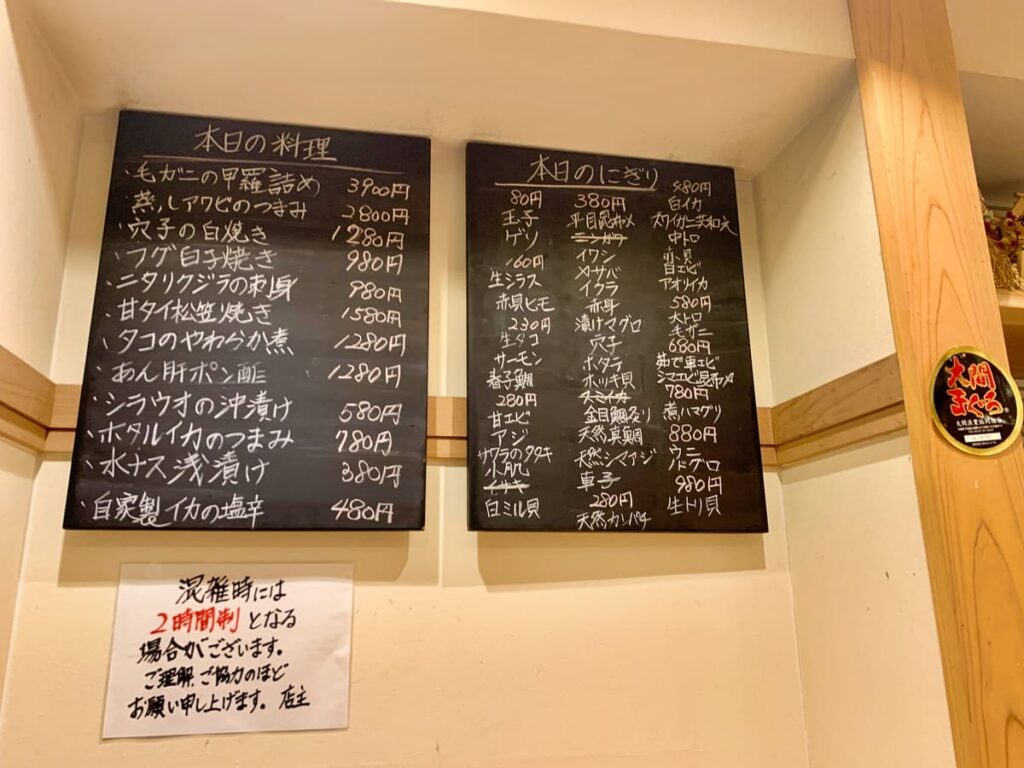 本日の料理
・毛ガニの甲羅詰め 3900円
・蒸しアワビのつまみ 2800円
・穴子の白焼き 1280円
・フグ白子焼き 980円
・ニタリクジラの刺身 980円
・甘タイ松笠焼き 1580円
・タコのやわらか煮 1280円
・あん肝ポン酢 1280円
・シラウオの沖漬け 580円
・ホタルイカのつまみ 780円
・水ナス浅漬け 380円
・自家製イカの塩辛 480円
本日のにぎり
80円
玉子
ゲソ
160円
生シラス
赤貝ヒモ
230円
生タコ
サーモン
春子鯛
280円
甘エビ
アジ
サワラのタタキ
小肌
イサキ
白ミル貝
380円
平目昆布〆
ニシン
イワシ
〆サバ
イクラ
赤身
漬けマグロ
穴子
ホタテ
ホッキ貝
スミイカ
金目鯛炙り
天然真鯛
天然シマアジ
280円
天然カンパチ
480円
白イカ
中トロ
小貝
白エビ
アオリイカ
580円
大トロ
毛ガニ
680円
茹で車エビ
シマエビ昆布〆
780円
煮ハマグリ
880円
ウニ
ノドグロ
980円
生トリ貝
混雑時には
2時間制となる
場合がございます。
ご理解、ご協力のほど
お願い申し上げます。店主
大間
まぐろ